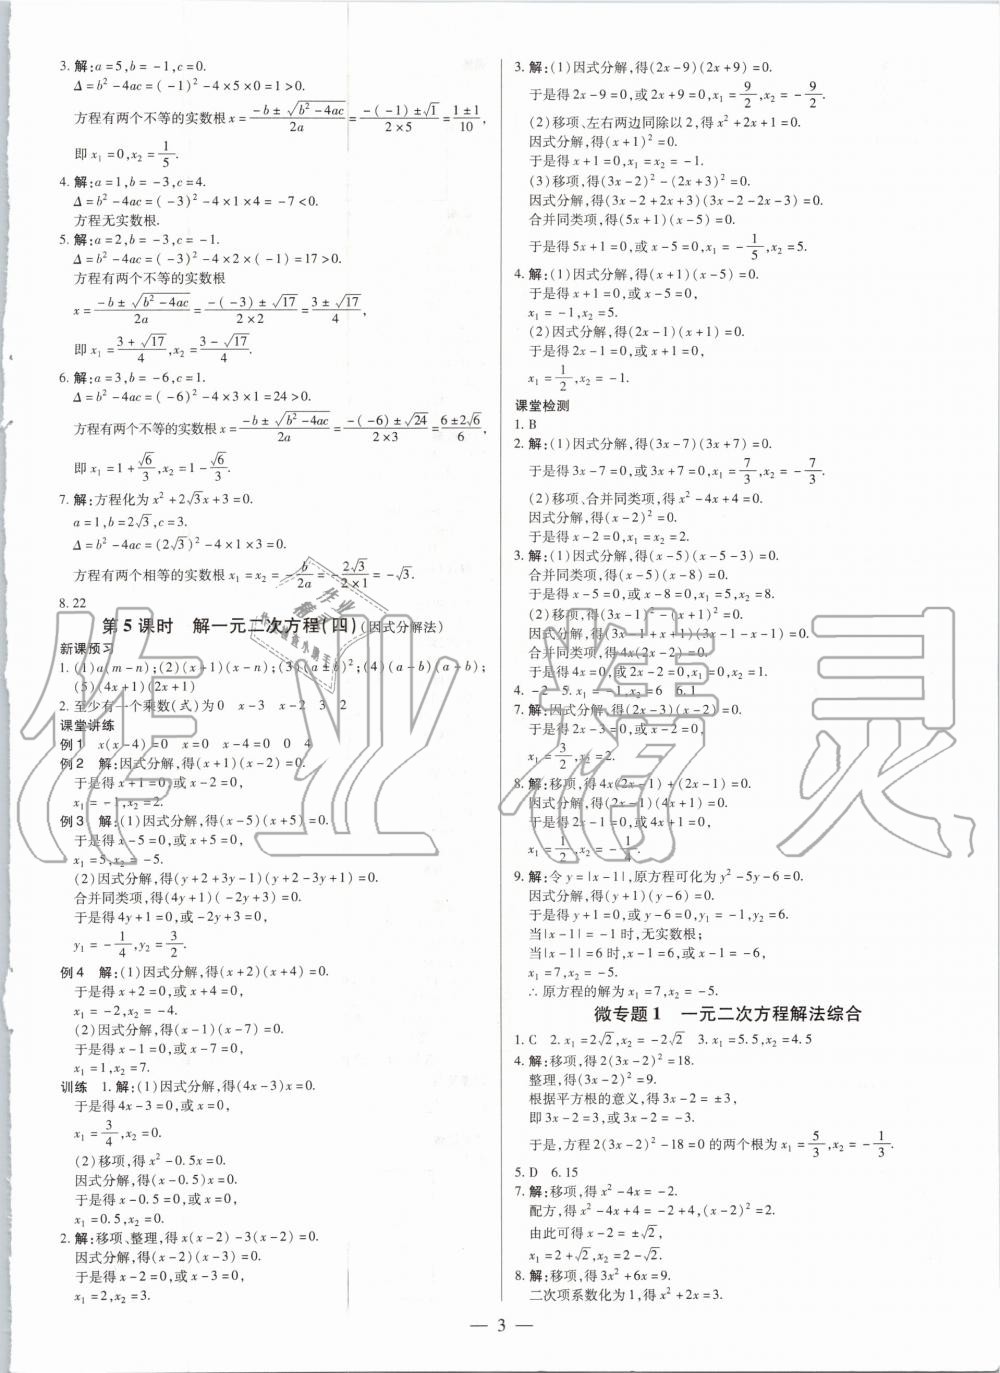 3. 解:a=5,b=-1,c=0.
Δ=b²-4ac=(-1)²-4×5×0=1>0.
方程有两个不等的实数根x=(-b±√(b²-4ac))/2a=(-(-1)±√1)/(2×5)=(1±1)/10,
即x₁=0,x₂=1/5.
4. 解:a=1,b=-3,c=4.
Δ=b²-4ac=(-3)²-4×1×4=-7<0.
方程无实数根.
5. 解:a=2,b=-3,c=-1.
Δ=b²-4ac=(-3)²-4×2×(-1)=17>0.
方程有两个不等的实数根
x=(-b±√(b²-4ac))/2a=(-(-3)±√17)/(2×2)=(3±√17)/4,
即x₁=(3+√17)/4,x₂=(3-√17)/4.
6. 解:a=3,b=-6,c=1.
Δ=b²-4ac=(-6)²-4×3×1=24>0.
方程有两个不等的实数根x=(-b±√(b²-4ac))/2a=(-(-6)±√24)/(2×3)=(6±2√6)/6,
即x₁=1+√6/3,x₂=1-√6/3.
7. 解:方程化为x²+2√3x+3=0.
a=1,b=2√3,c=3.
Δ=b²-4ac=(2√3)²-4×1×3=0.
方程有两个相等的实数根x₁=x₂=-b/2a=-2√3/(2×1)=-√3.
8. 22
第5课时 解一元二次方程(四)(因式分解法)
新课预习
1. (1)a(m-n);(2)(x+1)(x-n);(3)(a±b)²;(4)(a-b)(a+b);
(5)(4x+1)(2x+1)
2. 至少有一个乘数(式)为0 x-3 x-2 3 2
课堂讲练
例1 x(x-4)=0 x=0 x-4=0 0 4
例2 解:因式分解,得(x+1)(x-2)=0.
于是得x+1=0,或x-2=0,
x₁=-1,x₂=2.
例3 解:(1)因式分解,得(x-5)(x+5)=0.
于是得x-5=0,或x+5=0,
x₁=5,x₂=-5.
(2)因式分解,得(y+2+3y-1)(y+2-3y+1)=0.
合并同类项,得(4y+1)(-2y+3)=0.
于是得4y+1=0,或-2y+3=0,
y₁=-1/4,y₂=3/2.
例4 解:(1)因式分解,得(x+2)(x+4)=0.
于是得x+2=0,或x+4=0,
x₁=-2,x₂=-4.
(2)因式分解,得(x-1)(x-7)=0.
于是得x-1=0,或x-7=0,
x₁=1,x₂=7.
训练 1. 解:(1)因式分解,得(4x-3)x=0.
于是得4x-3=0,或x=0,
x₁=3/4,x₂=0.
(2)移项,得x²-0.5x=0.
因式分解,得(x-0.5)x=0.
于是得x-0.5=0,或x=0,
x₁=0.5,x₂=0.
2. 解:移项、整理,得x(x-2)-3(x-2)=0.
因式分解,得(x-2)(x-3)=0.
于是得x-2=0,或x-3=0,
x₁=2,x₂=3.
3. 解:(1)因式分解,得(2x-9)(2x+9)=0.
于是得2x-9=0,或2x+9=0,x₁=9/2,x₂=-9/2.
(2)移项、左右两边同除以2,得x²+2x+1=0.
因式分解,得(x+1)²=0.
于是得x+1=0,x₁=x₂=-1.
(3)移项,得(3x-2)²-(2x+3)²=0.
因式分解,得(3x-2+2x+3)(3x-2-2x-3)=0.
合并同类项,得(5x+1)(x-5)=0.
于是得5x+1=0,或x-5=0,x₁=-1/5,x₂=5.
4. 解:(1)因式分解,得(x+1)(x-5)=0.
于是得x+1=0,或x-5=0,
x₁=-1,x₂=5.
(2)因式分解,得(2x-1)(x+1)=0.
于是得2x-1=0,或x+1=0,
x₁=1/2,x₂=-1.
课堂检测
1. B
2. 解:(1)因式分解,得(3x-7)(3x+7)=0.
于是得3x-7=0,或3x+7=0,x₁=7/3,x₂=-7/3.
(2)移项、合并同类项,得x²-4x+4=0.
因式分解,得(x-2)²=0.
于是得x-2=0,x₁=x₂=2.
3. 解:(1)因式分解,得(x-5)(x-5-3)=0.
合并同类项,得(x-5)(x-8)=0.
于是得x-5=0,或x-8=0,
x₁=5,x₂=8.
(2)移项,得(3x-1)²-(x+1)²=0.
因式分解,得(3x-1+x+1)(3x-1-x-1)=0.
合并同类项,得4x(2x-2)=0.
于是得4x=0,或2x-2=0,x₁=0,x₂=1.
4. -2 5. x₁=-1,x₂=6 6. 1
7. 解:因式分解,得(2x-3)(x-2)=0.
于是得2x-3=0,或x-2=0,
x₁=3/2,x₂=2.
8. 解:移项,得4x(2x-1)+(2x-1)=0.
因式分解,得(2x-1)(4x+1)=0.
于是得2x-1=0,或4x+1=0,
x₁=1/2,x₂=-1/4.
9. 解:令y=|x-1|,原方程可化为y²-5y-6=0.
因式分解,得(y+1)(y-6)=0.
于是得y+1=0,或y-6=0,y₁=-1,y₂=6.
当|x-1|=-1时,无实数根;
当|x-1|=6时,x-1=6,或x-1=-6,
x₁=7,x₂=-5.
∴原方程的解为x₁=7,x₂=-5.
微专题1 一元二次方程解法综合
1. C 2. x₁=2√2,x₂=-2√2 3. x₁=5.5,x₂=4.5
4. 解:移项,得2(3x-2)²=18.
整理,得(3x-2)²=9.
根据平方根的意义,得3x-2=±3,
即3x-2=3,或3x-2=-3.
于是,方程2(3x-2)²-18=0的两个根为x₁=5/3,x₂=-1/3.
5. D 6. 15
7. 解:移项,得x²-4x=-2.
配方,得x²-4x+4=-2+4,(x-2)²=2.
由此可得x-2=±√2,
x₁=2+√2,x₂=2-√2.
8. 解:移项,得3x²+6x=9.
二次项系数化为1,得x²+2x=3.
— 3 —
作业精灵